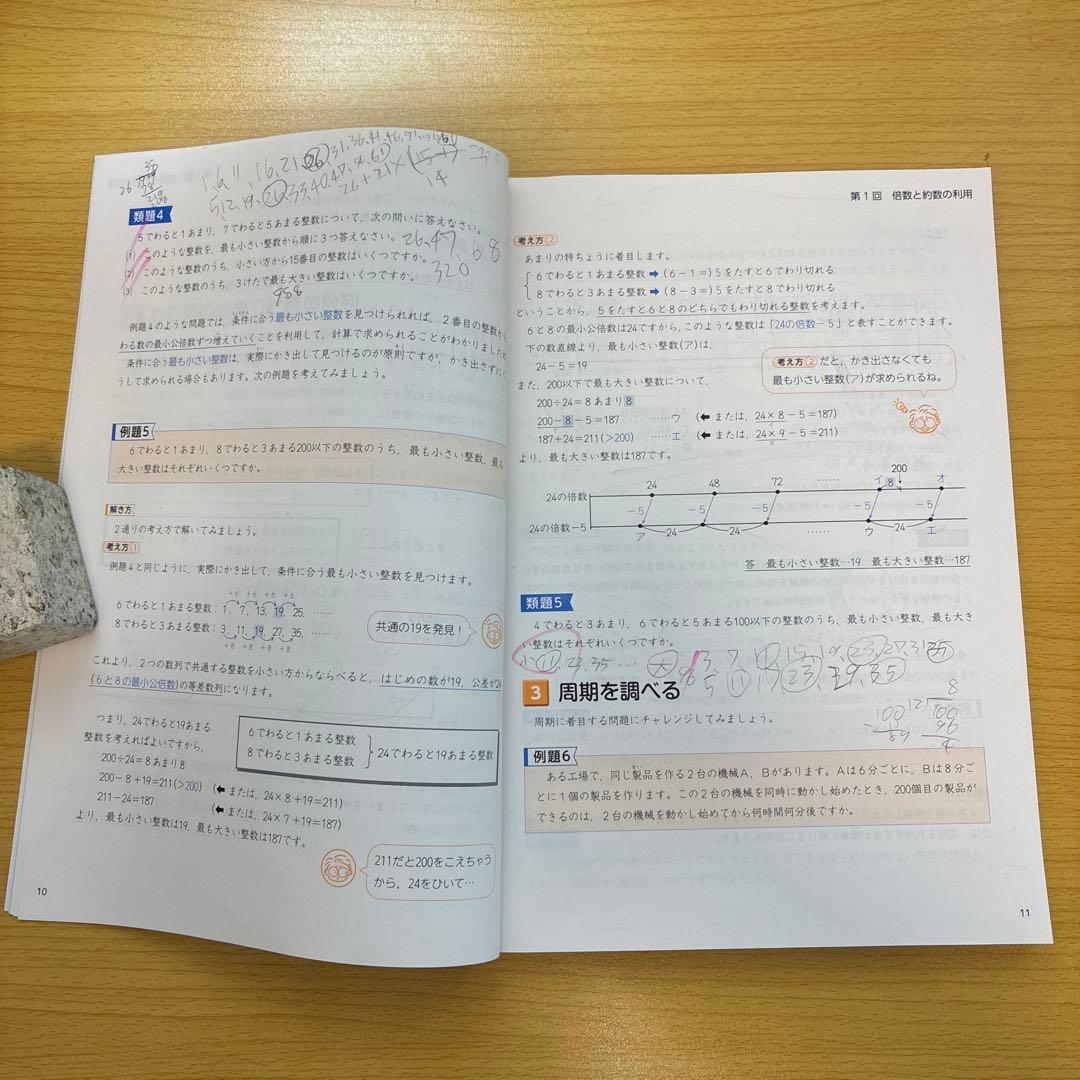 1, 6, 11, 16, 21, 26, 31, 36, 41, 46,
5, 12, 19, 26, 33, 40, 47,
26+21×(15-1)
14
類題4
5でわると1あまり，7でわると5あまる整数について，次の問いに答えなさい。
(1) このような整数を，最も小さい整数から順に3つ答えなさい。
26, 47, 68
(2) このような整数のうち，小さい方から15番目の整数はいくつですか。
320
(3) このような整数のうち，3けたで最も大きい整数はいくつですか。
988
例題4のような問題では，条件に合う最も小さい整数を見つけられれば，2番目の整数から
わる数の最小公倍数ずつ増えていくことを利用して，計算で求められることがわかりました
条件に合う最も小さい整数は，実際にかき出して見つけるのが原則ですが，かき出さずに
うして求められる場合もあります。次の例題を考えてみましょう。
例題5
6でわると1あまり，8でわると3あまる200以下の整数のうち，最も小さい整数，最も
大きい整数はそれぞれいくつですか。
解き方
2通りの考え方で解いてみましょう。
考え方①
例題4と同じように，実際にかき出して，条件に合う最も小さい整数を見つけます。
+6 +6 +6 +6
6でわると1あまる整数：1, 7, 13, 19, 25, ……
8でわると3あまる整数：3, 11, 19, 27, 35, ……
+8 +8 +8 +8
共通の19を発見！
これより，2つの数列で共通する整数を小さい方からならべると，はじめの数が19，公差が24
(6と8の最小公倍数)の等差数列になります。
つまり，24でわると19あまる
整数を考えればよいですから，
200÷24=8あまり8
200−8+19=211(>200) (⬅または，24×8+19=211)
211−24=187 (⬅または，24×7+19=187)
より，最も小さい整数は19，最も大きい整数は187です。
6でわると1あまる整数
8でわると3あまる整数
24でわると19あまる整数
211だと200をこえちゃう
から，24をひいて…
10
第1回 倍数と約数の利用
考え方②
あまりの特ちょうに着目します。
6でわると1あまる整数➡(6−1=)5をたすと6でわり切れる
8でわると3あまる整数➡(8−3=)5をたすと8でわり切れる
ということから，5をたすと6と8のどちらでもわり切れる整数を考えます。
6と8の最小公倍数は24ですから，このような整数は「24の倍数−5」と表すことができます。
下の数直線より，最も小さい整数(ア)は，
24−5=19
考え方②だと，かき出さなくても
最も小さい整数(ア)が求められるね。
また，200以下で最も大きい整数について，
200÷24=8あまり8
200−8−5=187 ……ウ (⬅または，24×8−5=187)
187+24=211(>200) ……エ (⬅または，24×9−5=211)
より，最も大きい整数は187です。
200
24 48 72 …… イ 8 オ
24の倍数
−5 −5 −5 −5 −5
24の倍数−5
ア 24 24 …… ウ 24 エ
答 最も小さい整数…19 最も大きい整数…187
類題5
4でわると3あまり，6でわると5あまる100以下の整数のうち，最も小さい整数，最も大き
い整数はそれぞれいくつですか。
小 11, 23, 35
大
3, 7, 11, 15, 19, 23, 27, 31, 35
5, 11, 17, 23, 29, 35
8
12 100
96
4
100
11
89
3 周期を調べる
周期に着目する問題にチャレンジしてみましょう。
例題6
ある工場で，同じ製品を作る2台の機械A，Bがあります。Aは6分ごとに，Bは8分ご
とに1個の製品を作ります。この2台の機械を同時に動かし始めたとき，200個目の製品が
できるのは，2台の機械を動かし始めてから何時間何分後ですか。
11